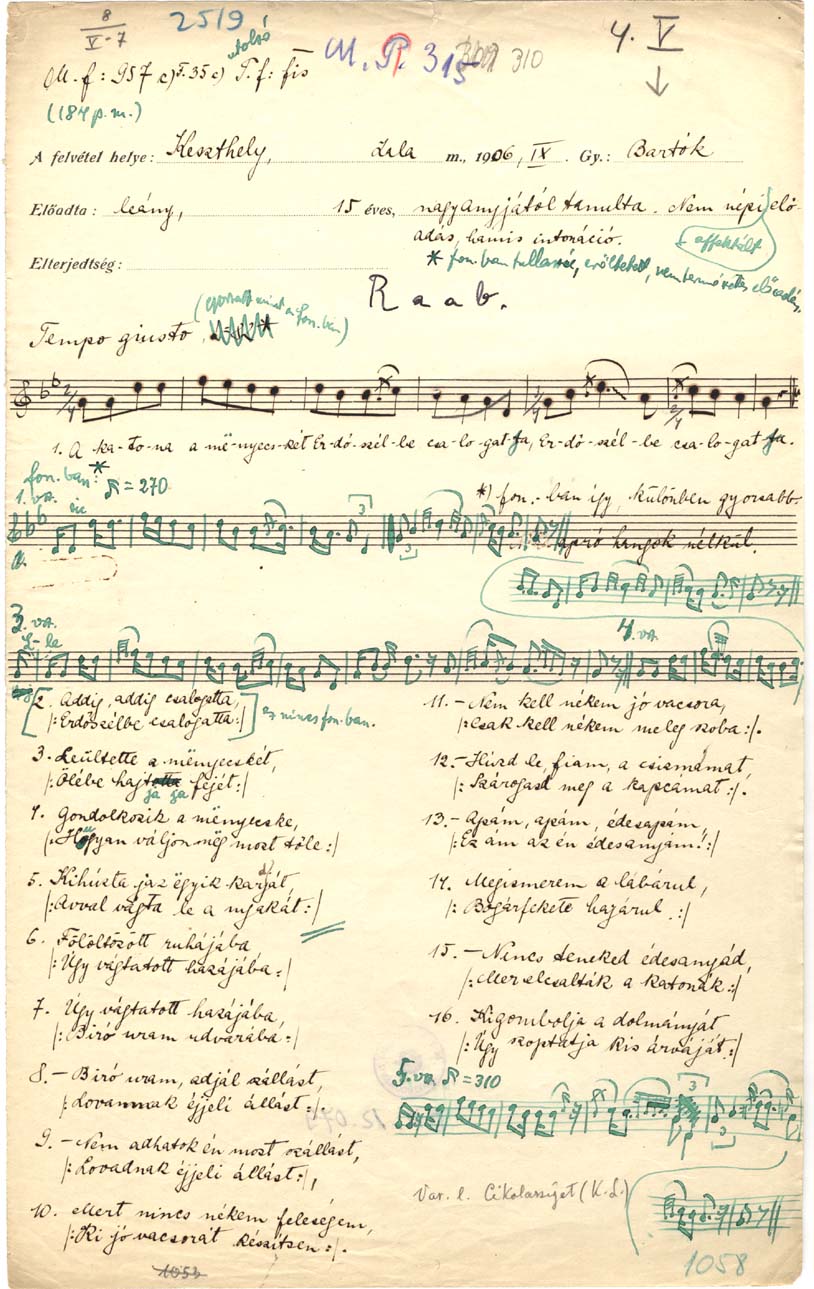 8
V-7
2519
utolsó
M. P. 315
310
4. V
M. f: 957 c) T. 35 c) T. f: fis
(184 p.m.)
A felvétel helye: Keszthely, Zala m., 1906, IX. Gy.: Bartók
Előadta: leány, 15 éves, nagyanyjától tanulta. Nem népi elő-
adás, hamis intonáció.
affektált
Elterjedtség:
* fon. ban tullassú, erőltetett, nem természetes előadás,
Raab.
(gyorsabb mint a fon. ban)
Tempo giusto
1. A ka-to-na a më-nyecs-két Er-dő-szél-be csa-lo-gat-ja, Er-dő-szél-be csa-lo-gat-ja.
fon. ban: *
= 270
1. va.
*) fon.-ban így, különben gyorsabb
apró hangok nélkül.
3. va.
L-le
4. va.
2. Addig, addig csalogatta,
|:Erdőszélbe csalogatta:|
ez nincs fon. ban.
3. Leültette a mënyecskét,
|:Ölébe hajtotta fejét:|
ja ja
4. Gondolkozik a mënyecske,
|:Hogyan váljon mëg most tőle:|
5. Kihúzta jaz ëgyik kardját,
|:Avval vágta le a nyakát:|
6. Fölöltözött ruhájába
|:Úgy vágtatott hazájába:|
7. Úgy vágtatott hazájába,
|:Biró uram udvarába:|
8. – Biró uram, adjál szállást,
|:Lovamnak éjjeli állást:|.
9. – Nem adhatok én most szállást,
|:Lovadnak éjjeli állást:|,
10. Mert nincs nékem feleségem,
|:Ki jó vacsorát készítsen:|.
1053
11. – Nem kell nékem jó vacsora,
|:Csak kell nékem meleg szoba:|.
12. – Húzd le, fiam, a csizmámat,
|:Szárogasd meg a kapcámat:|.
13. – Apám, apám, édesapám,
|:Ez ám az én édesanyám!:|
14. Megismerem a lábárul,
|:Bogárfekete hajárul.:|
15. – Nincs teneked édesanyád,
|:Mer elcsalták a katonák:|
16. Kigombolja a dolmányát
|:Úgy szoptatja kis árváját.:|
5. va. = 310
Var. l. Cikolasziget (K.S.)
1058